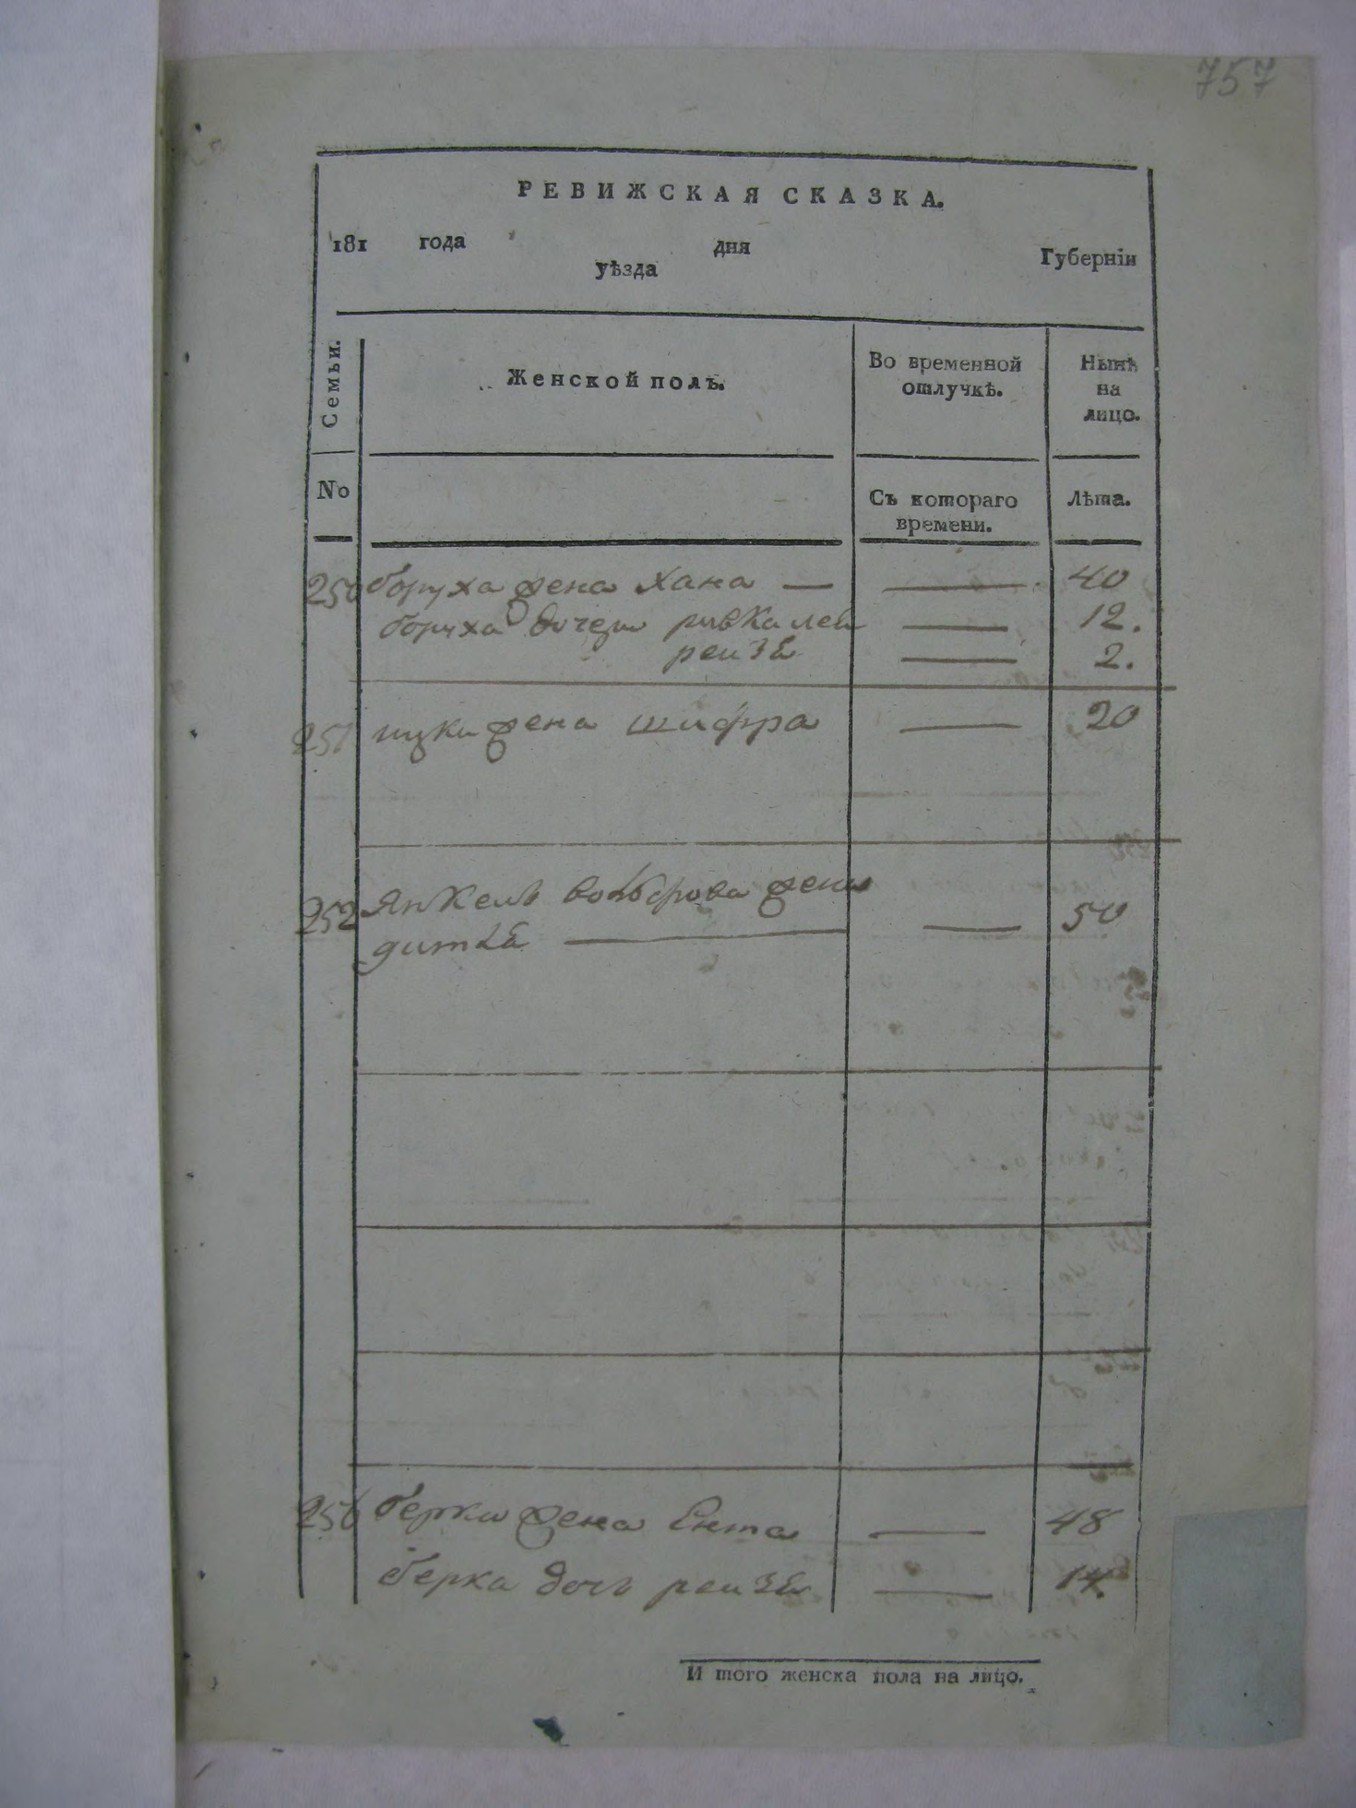 757
РЕВИЖСКАЯ СКАЗКА.
181 года дня Губерніи
уѣзда
Семьи. Женской полъ. Во временной отлучкѣ. Нынѣ на лицо.
No Съ котораго времени. Лѣта.
250 боруха жена хана — — 40
боруха дочери ривка леи — 12.
реизе — 2.
251 ицки жена шифра — 20
252 Янкель жена
— — 50
256 берки жена Ента — 48
берка дочь реизе — 14.
И того женска пола на лицо.